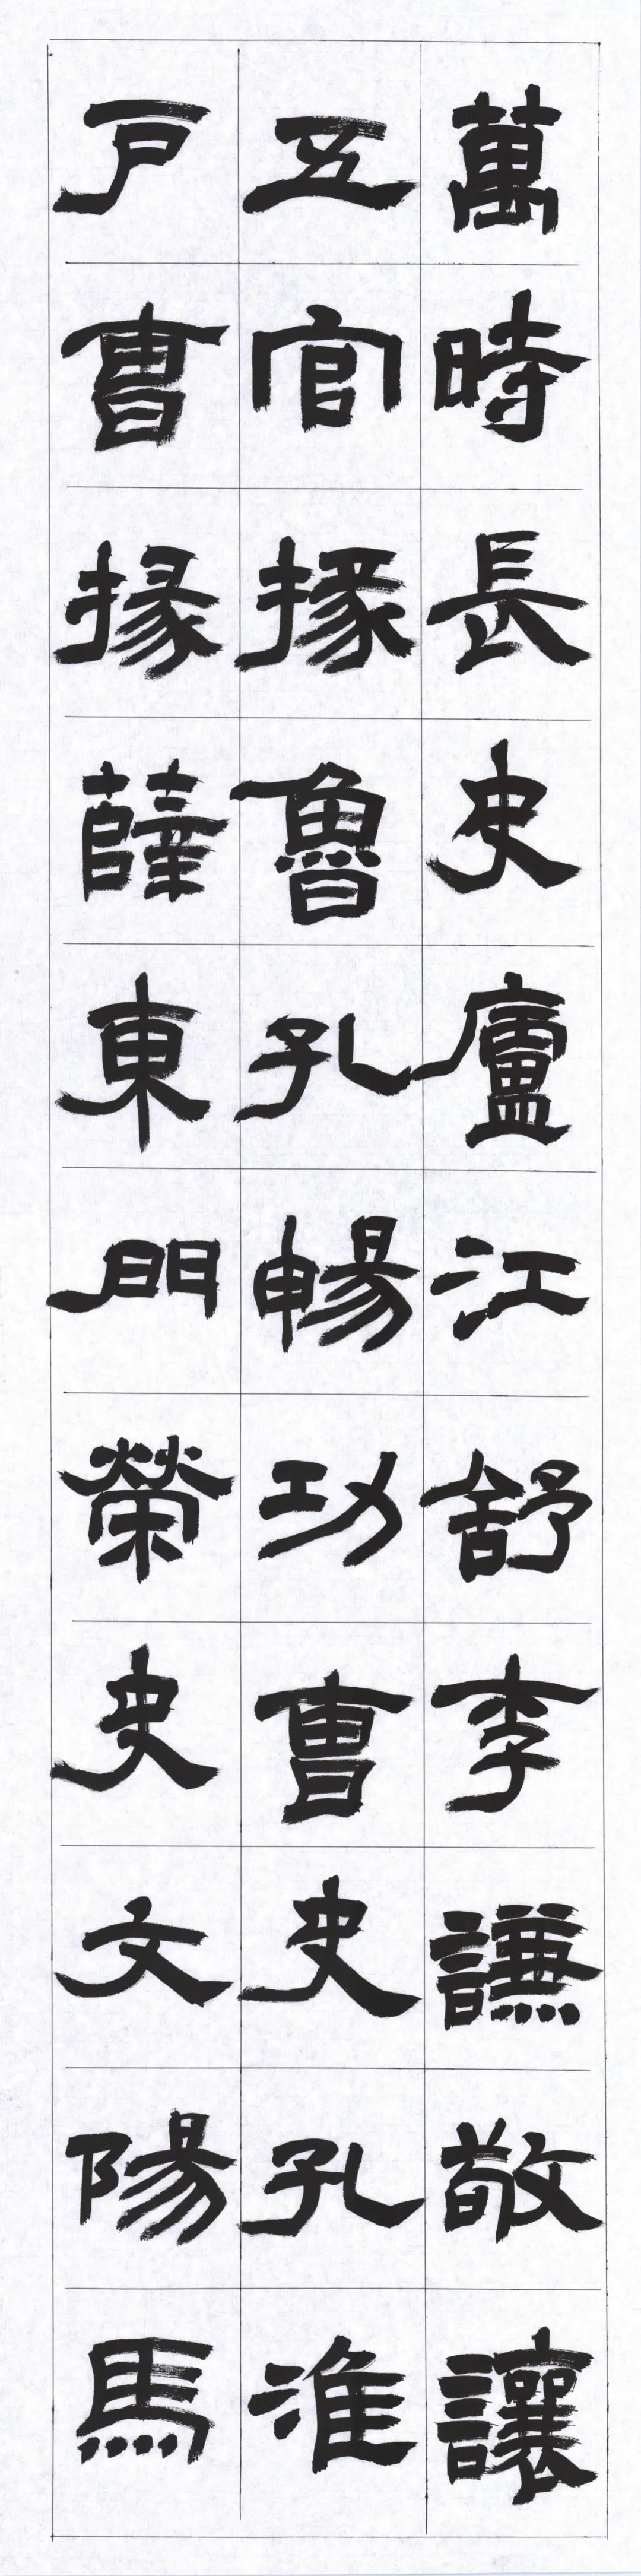 萬時長史廬江舒李謙敬讓
五官掾魯孔暢功曹史孔淮
戶曹掾薛東門榮史文陽馬